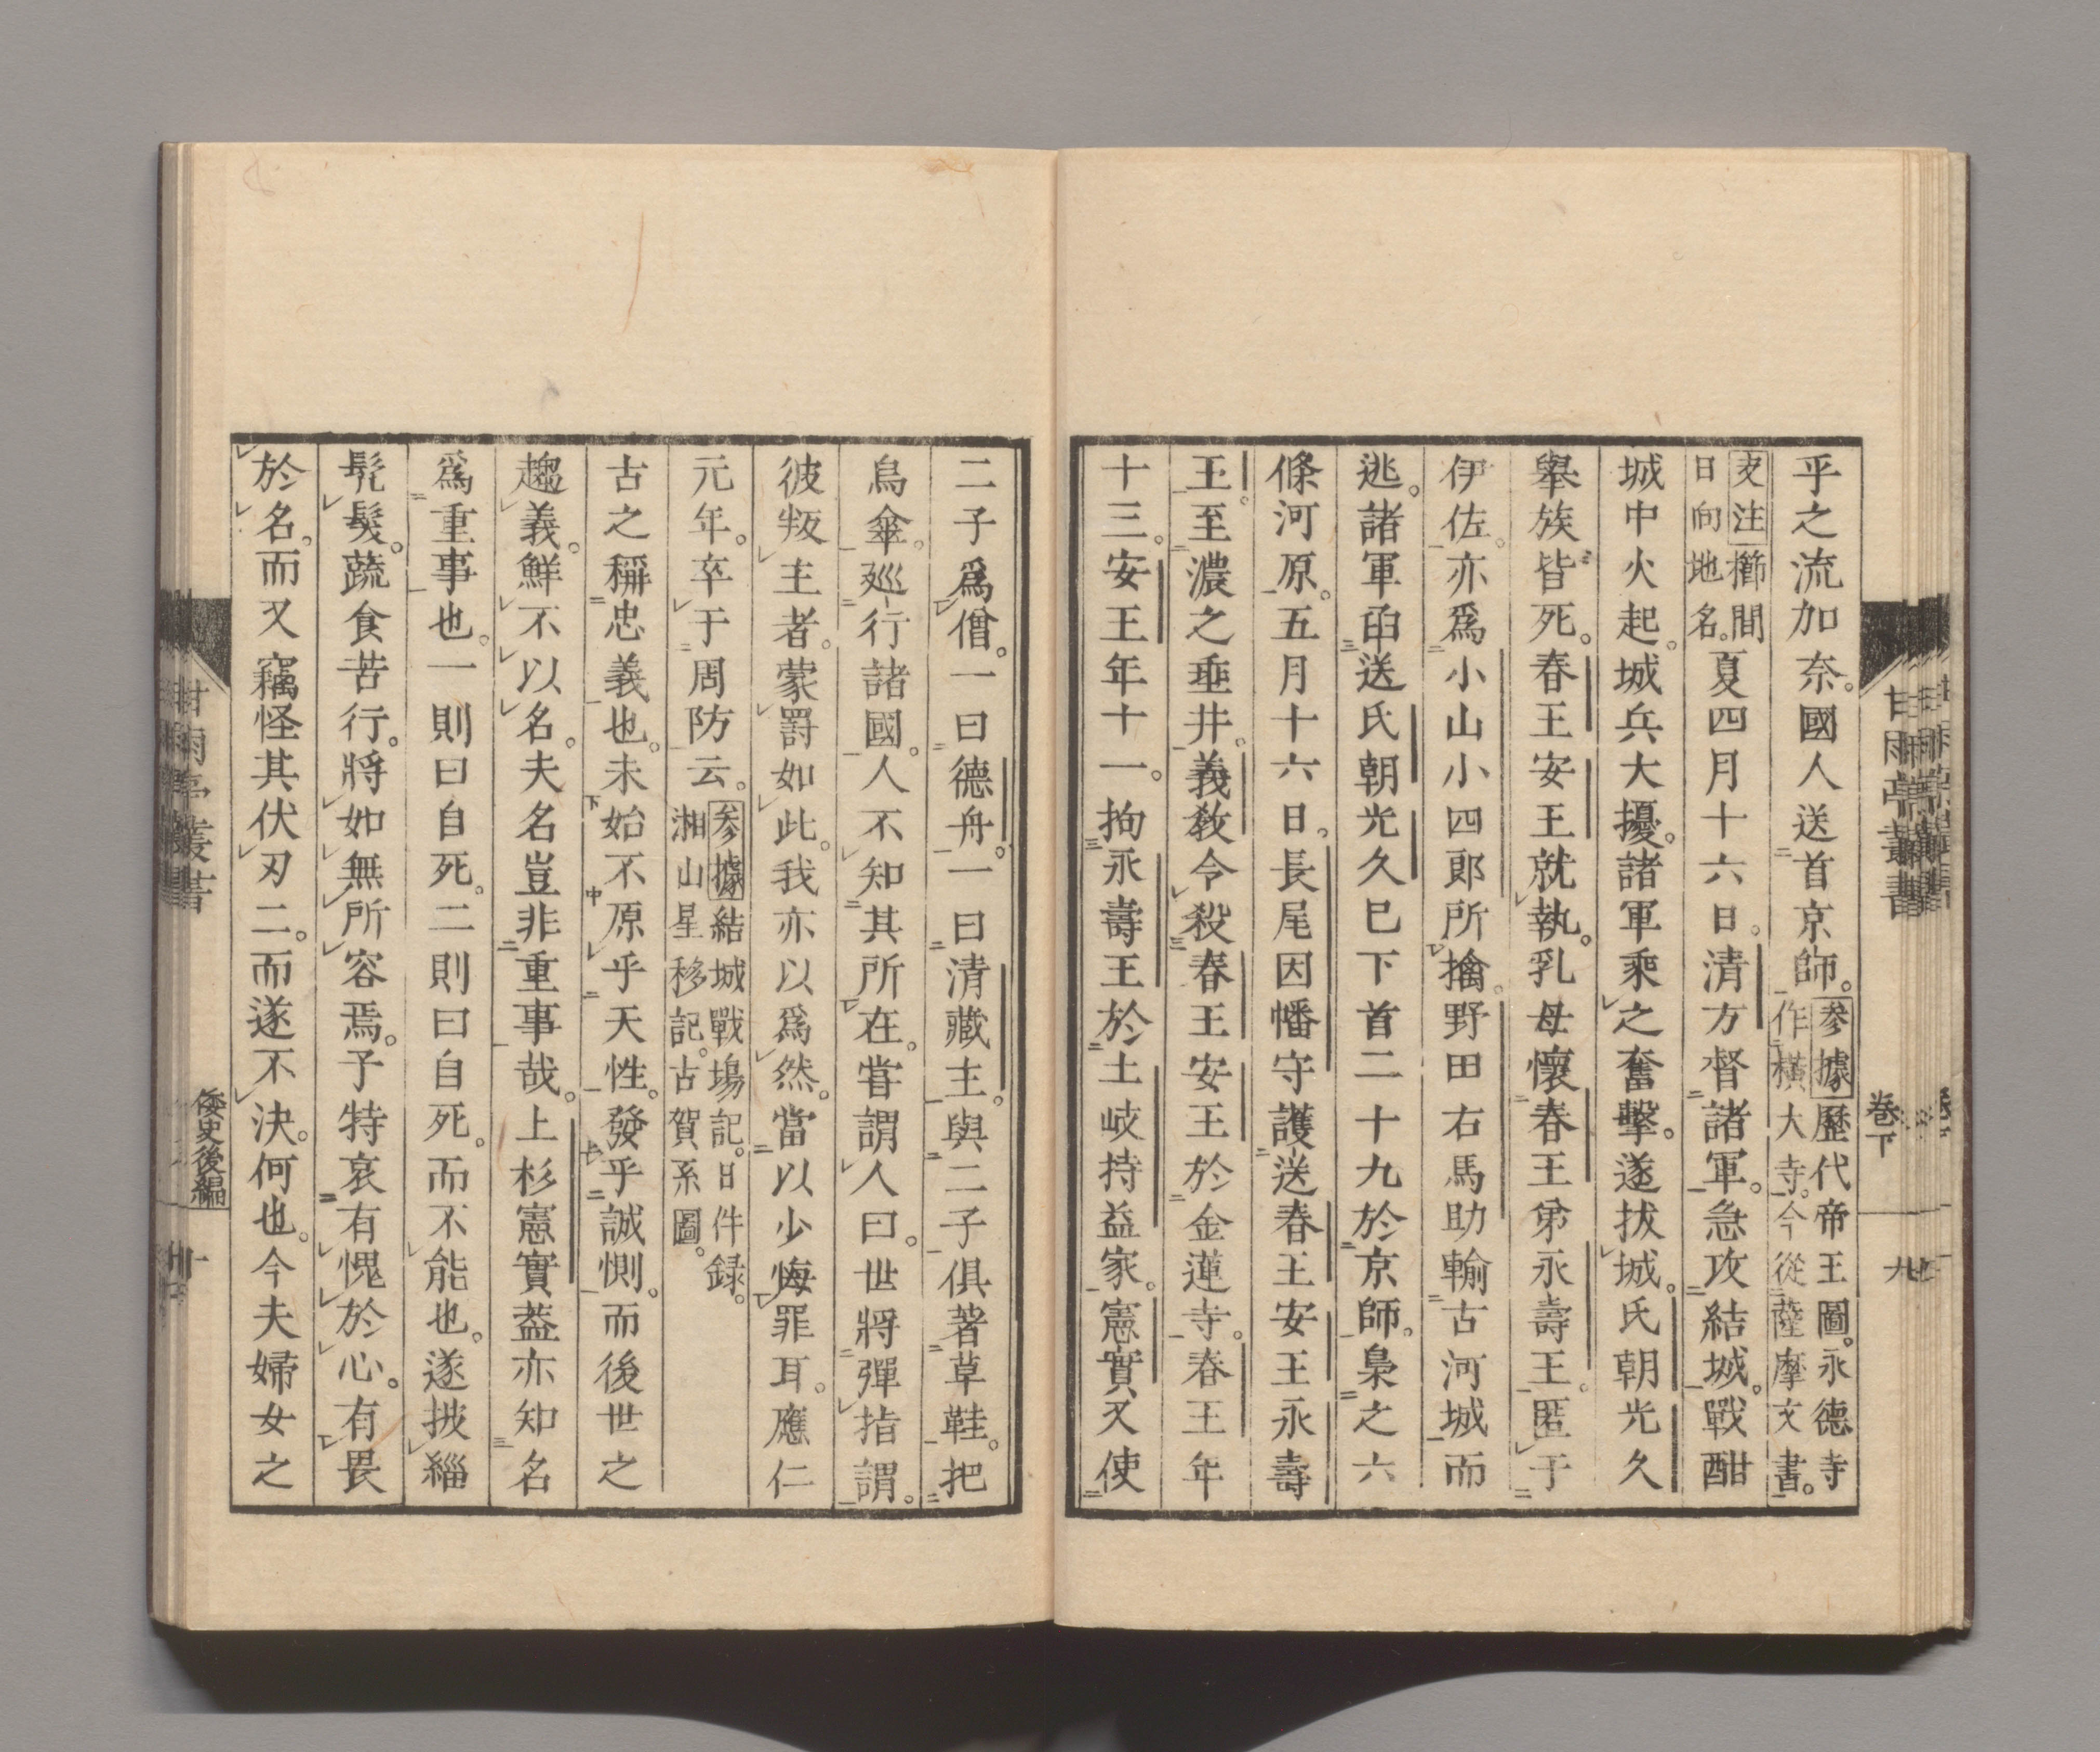 乎之流加奈。國人送首京師。參據歷代帝王圖。永德寺作橫大寺。今從薩摩文書。
支注櫛間日向地名。夏四月十六日。清方督諸軍。急攻結城。戰酣
城中火起。城兵大擾。諸軍乘之奮擊。遂拔城。氏朝光久
舉族皆死。春王安王就執。乳母懷春王弟永壽王。匿于
伊佐。亦爲小山小四郎所擒。野田右馬助輸古河城而
逃。諸軍函送氏朝光久已下首二十九於京師。梟之六
條河原。五月十六日。長尾因幡守護送春王安王永壽
王。至濃之垂井。義教令殺春王安王於金蓮寺。春王年
十三。安王年十一。拘永壽王於土岐持益家。憲實又使
卷下
二子爲僧。一曰德舟。一曰清藏主。與二子俱著草鞋。把
鳥傘。廵行諸國。人不知其所在。嘗謂人曰。世將彈指謂。
彼叛主者。蒙罸如此。我亦以爲然。當以少悔罪耳。應仁
元年。卒于周防云。參據結城戰塲記。日件録。湘山星移記。古賀系圖。
古之稱忠義也。未始不原乎天性。發乎誠惻。而後世之
趨義。鮮不以名。夫名豈非重事哉。上杉憲實葢亦知名
爲重事也。一則曰自死。二則曰自死。而不能也。遂披緇
髠髮。蔬食苦行。將如無所容焉。予特哀有愧於心。有畏
於名。而又竊怪其伏刃二。而遂不決。何也。今夫婦女之
甘雨亭叢書
倭史後編